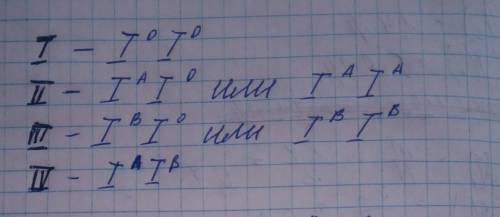 I – I⁰ I⁰
II – Iᴬ I⁰ или Iᴬ Iᴬ
III – Iᴮ I⁰ или Iᴮ Iᴮ
IV – Iᴬ Iᴮ